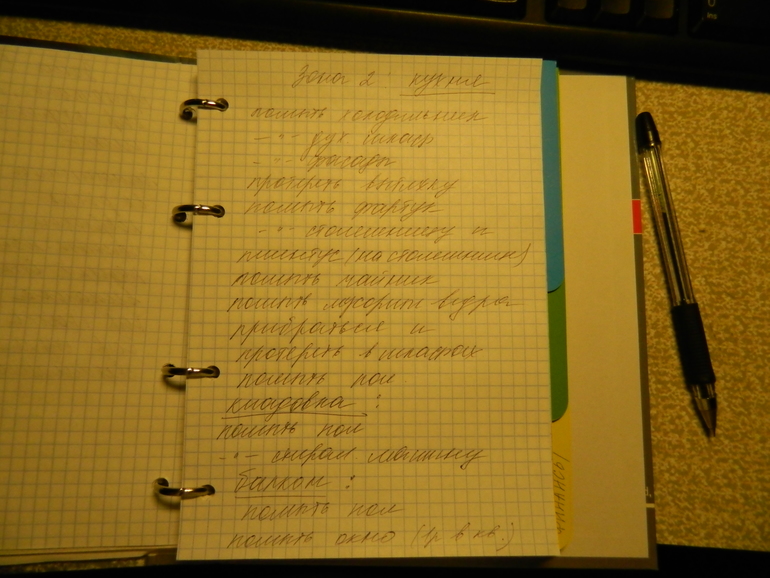 Зона 2 кухня
помыть холодильник
–"– дух шкаф
–"– фасады
протереть вытяжку
помыть фартук
–"– столешницу и
плинтус (на столешнице)
помыть чайник
помыть мусорные ведра
прибраться и
протереть в шкафах
помыть пол
кладовка:
помыть пол
–"– стирал машинку
балкон:
помыть пол
помыть окно (1р в кв.)
ФИНАНСЫ